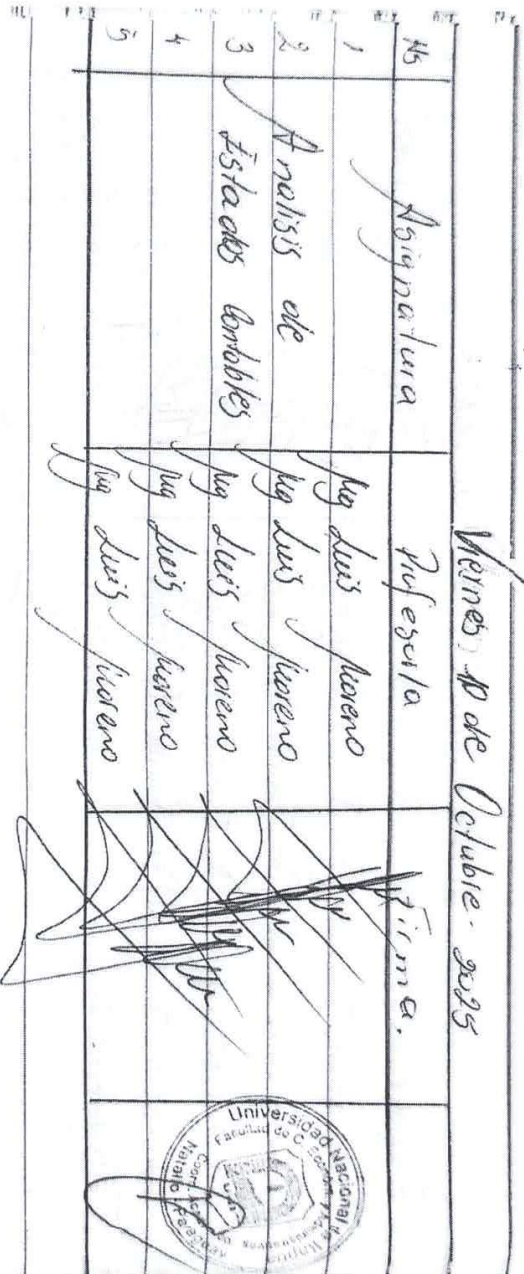 Viernes 10 de Octubre - 2025
No Asignatura Profesor/a Firma.
1 Mg Luis Moreno
2 Analisis de Mg Luis Moreno
3 Estados Contables Mg Luis Moreno
4 Mg Luis Moreno
5 Mg Luis Moreno
Universidad Nacional
Facultad de C.
Natalio